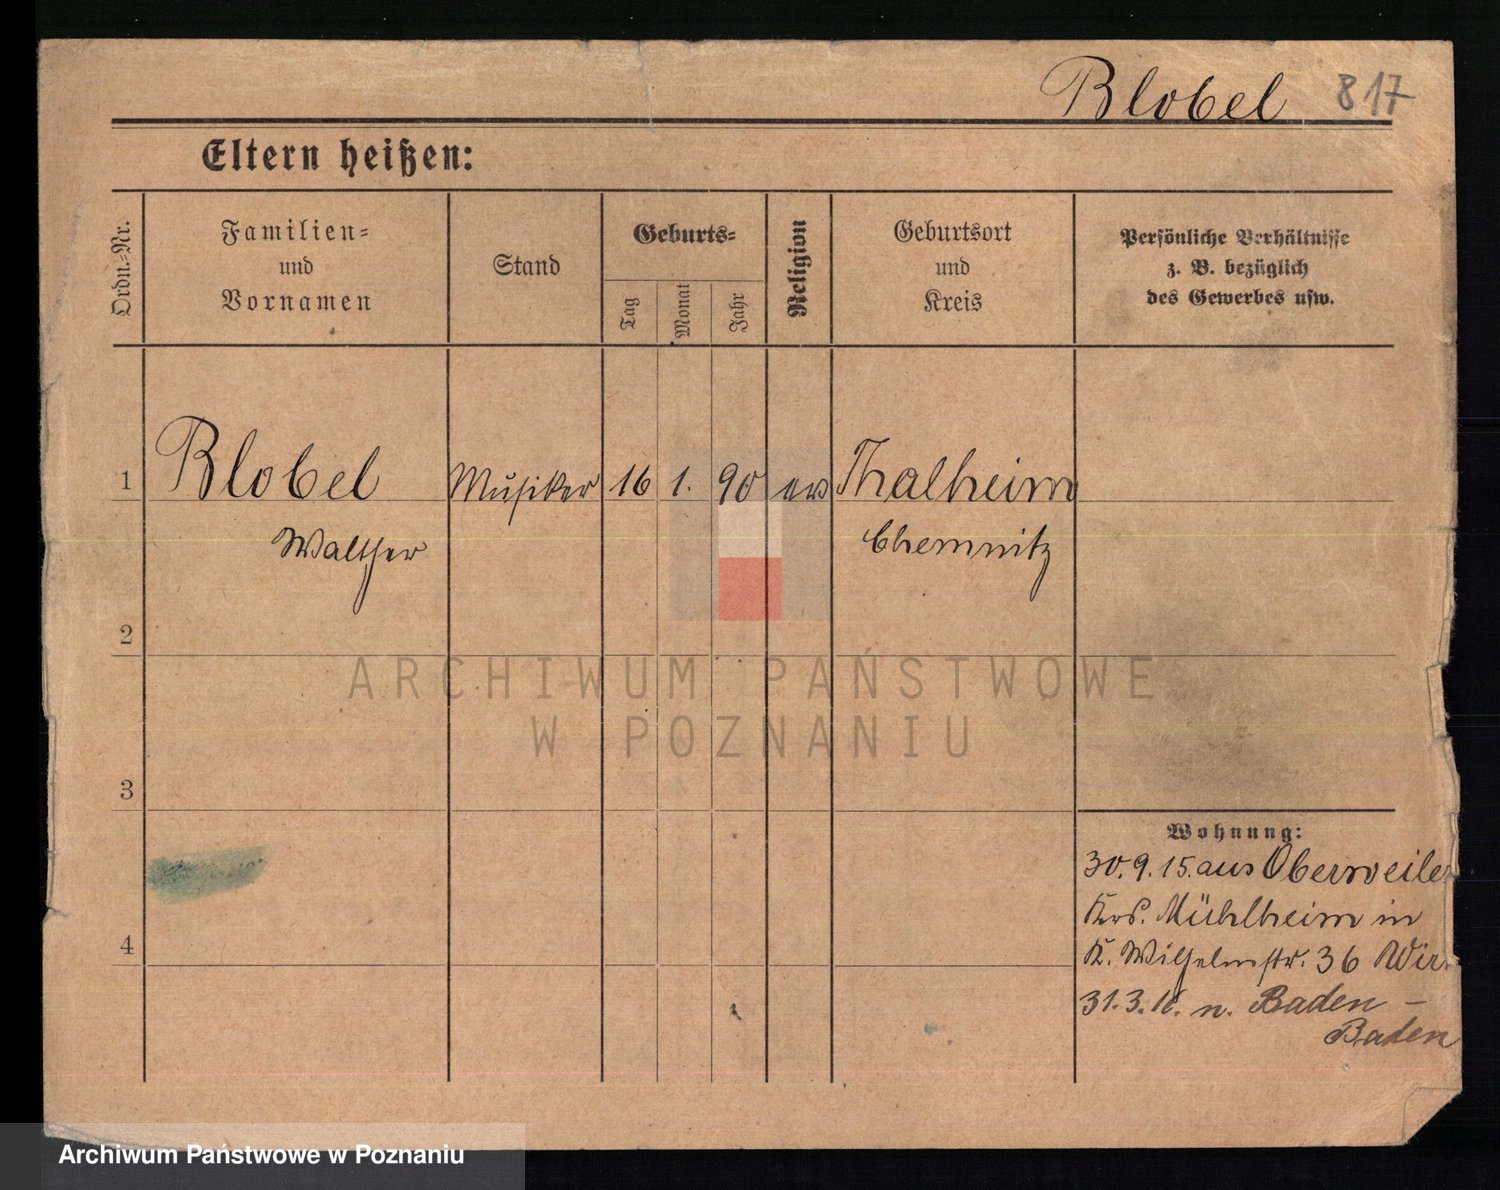 Blobel 817
Eltern heißen:
Ordn.=Nr.
Familien=
und
Vornamen
Stand
Geburts=
Tag
Monat
Jahr
Religion
Geburtsort
und
Kreis
Persönliche Verhältnisse
z. B. bezüglich
des Gewerbes usw.
1 Blobel Musiker 16 1. 90 ev Thalheim
Walther Chemnitz
2
3
4
Wohnung:
30.9.15. aus Oberweiler
Krs. Mühlheim in
K. Wilhelmstr. 36 Wir.
31.3. n. Baden-
Baden
ARCHIWUM PAŃSTWOWE
W POZNANIU
Archiwum Państwowe w Poznaniu